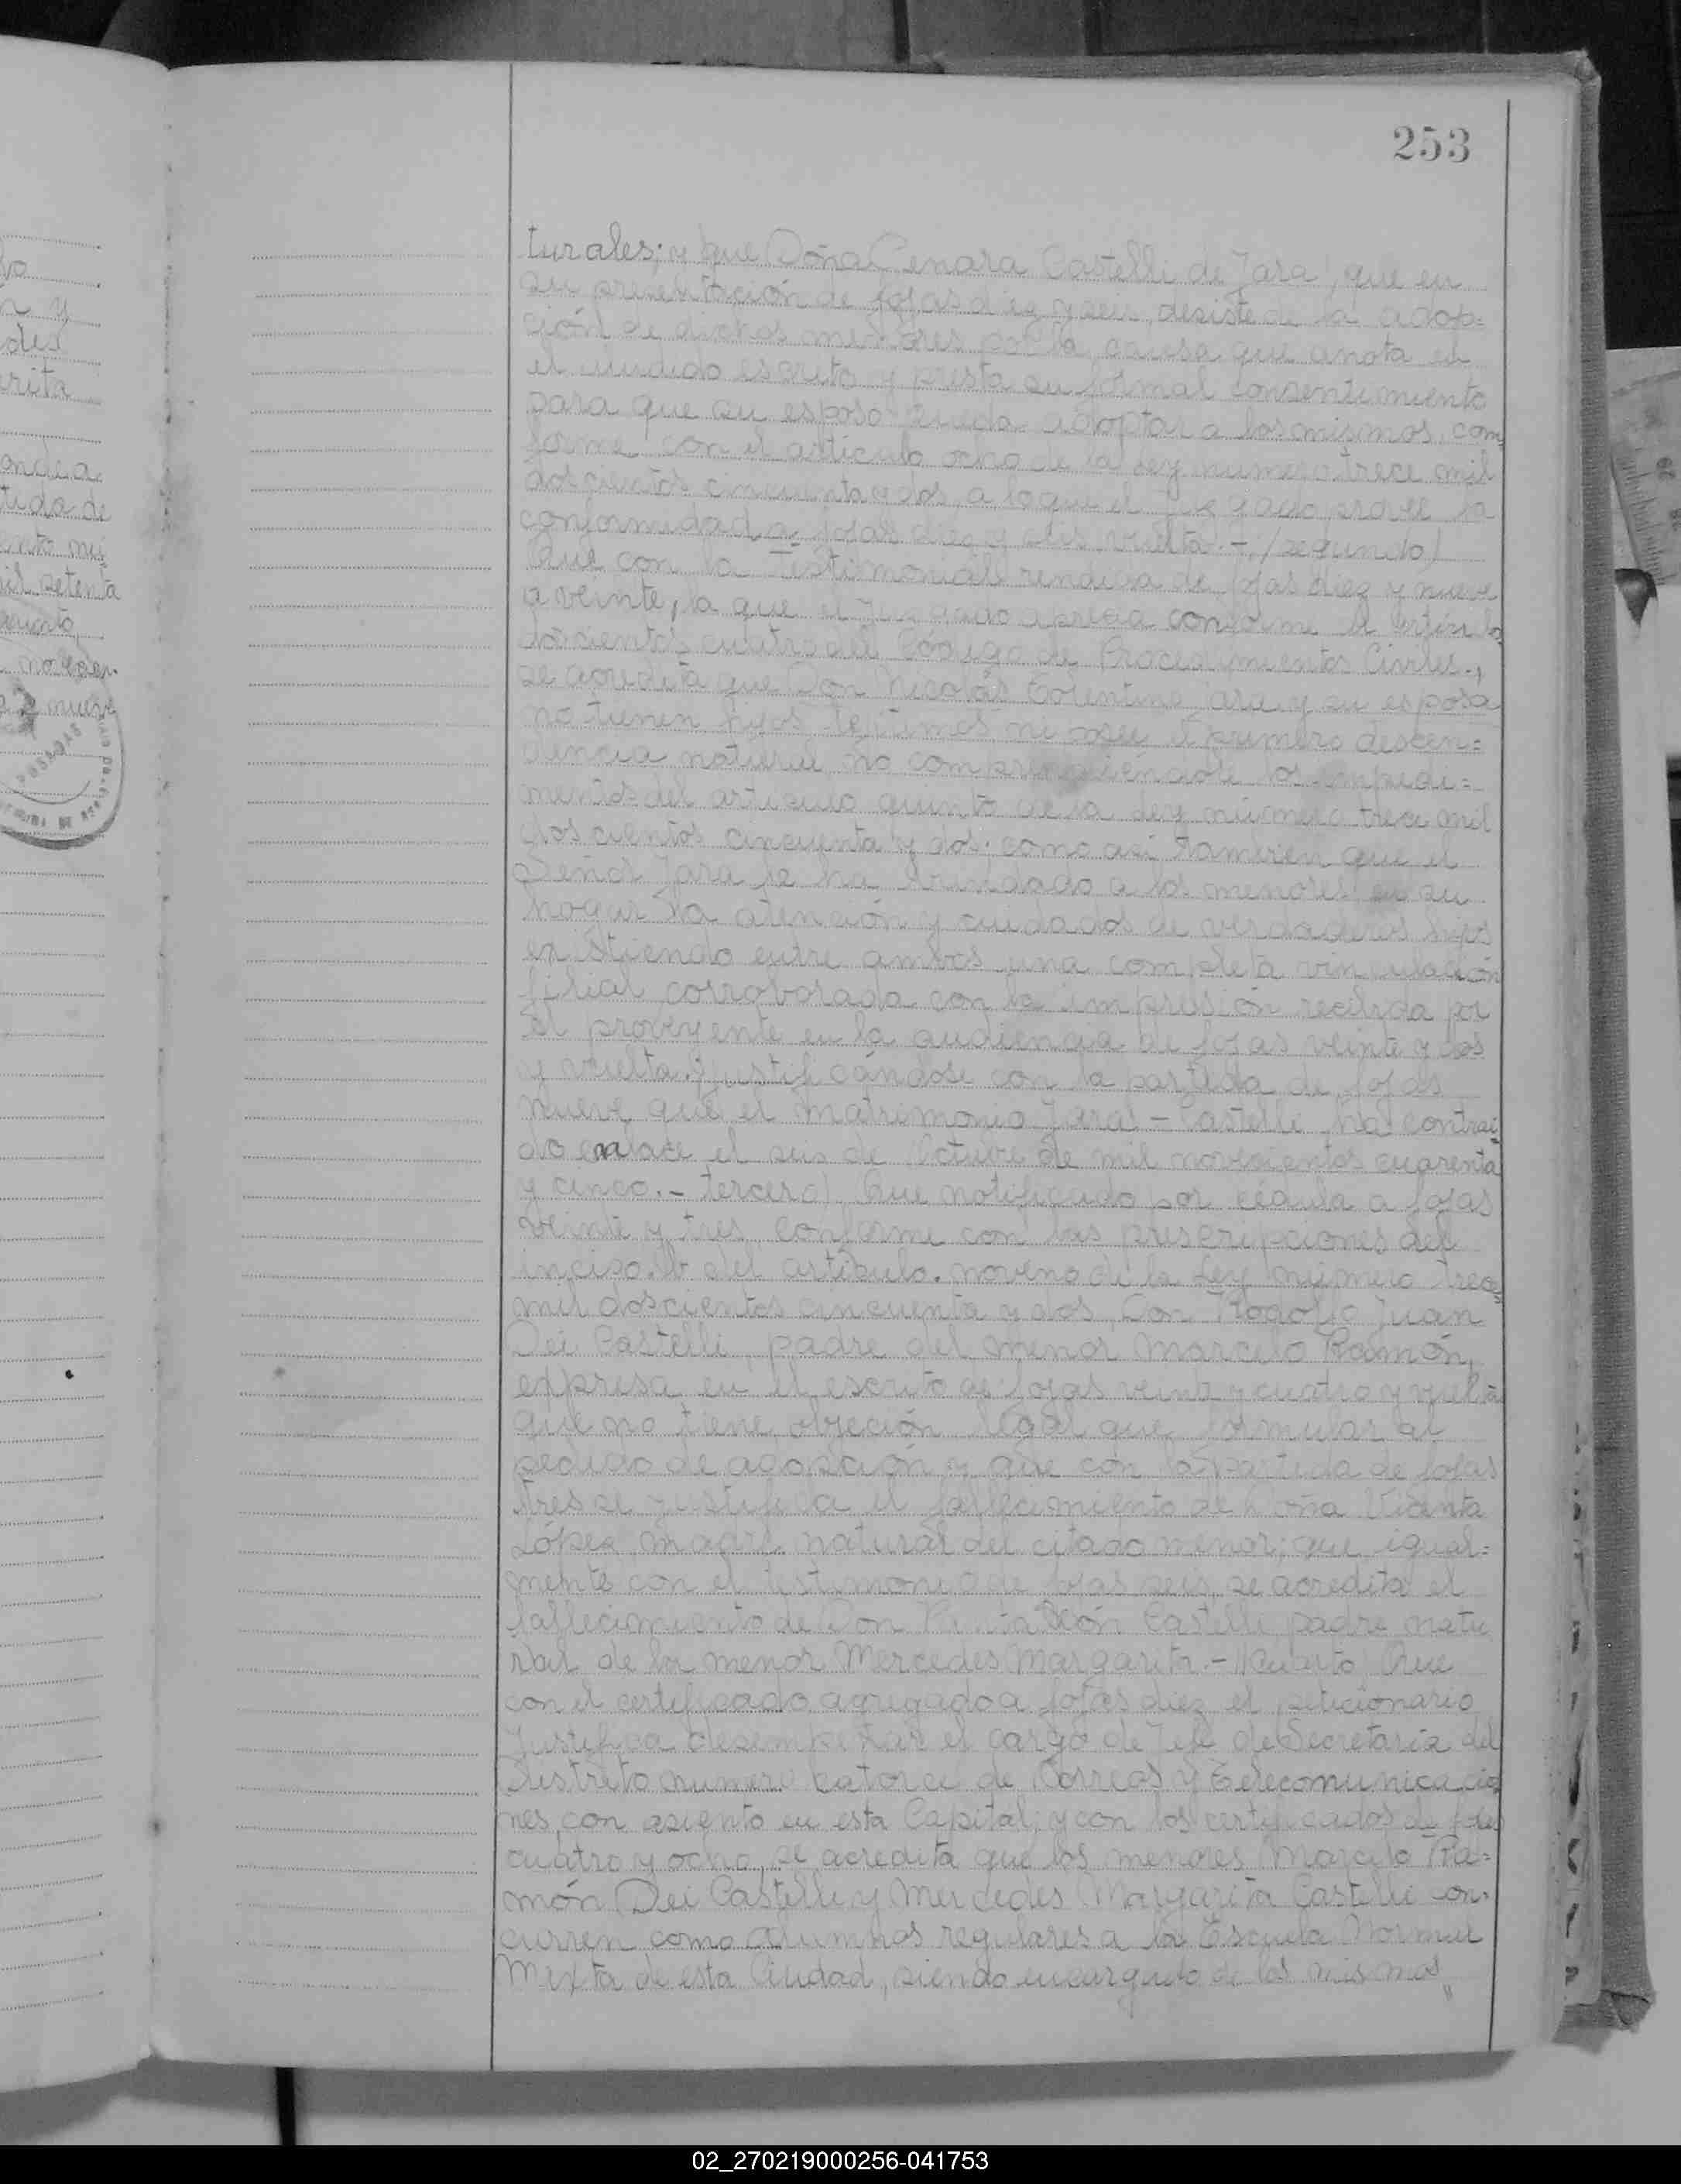 253
turales; y que Doña Cenara Castelli de Jara, que en
su presentación de fojas diez y seis, desiste de la adop=
ción de dichos menores por la causa que anota en
el aludido escrito y presta su formal consentimiento
para que su esposo pueda adoptar a los mismos, con,
forme con el artículo ocho de la Ley numero trece mil
doscientos cincuenta y dos, a lo que el Juzgado provee la
conformidad a fojas diez y seis vuelta.- /segundo/
Que con la Testimonial rendida de fojas diez y nueve
a veinte, la que el Juzgado aprecia conforme al artículo
doscientos cuatro del Código de Procedimientos Civiles.,
se acredita que Don Nicolás Tolentino Jara y su esposa
no tienen hijos legítimos ni posee el primero descen=
dencia natural no comprendiéndole los impedi=
mentos del artículo quinto de la Ley número trece mil
doscientos cincuenta y dos; como así también que el
Señor Jara le ha brindado a los menores en su
hogar la atención y cuidados de verdaderos hijos
existiendo entre ambos una completa vinculación
filial corroborada con la impresión recibida por
el proveyente en la audiencia de fojas veinte y dos
y vuelta. Justificándose con la partida de fojas
nueve que el matrimonio Jara - Castelli ha contrai
do enlace el seis de Octubre de mil novecientos cuarenta
y cinco.- tercero) Que notificado por cédula a fojas
veinte y tres, conforme con las prescripciones del
inciso b del artículo noveno de la Ley número trece
mil doscientos cincuenta y dos, Don Rodolfo Juan
Dei Castelli, padre del menor Marcelo Ramón,
expresa en el escrito de fojas veinte y cuatro y vuelta
que no tiene objeción legal que formular al
pedido de adopción y que con la partida de fojas
tres se justifica el fallecimiento de Doña Vicenta
López, madre natural del citado menor; que igual=
mente con el testimonio de fojas seis, se acredita el
fallecimiento de Don Castelli, padre natu
ral de la menor Mercedes Margarita.- /Cuarto/ Que
con el certificado agregado a fojas diez el peticionario
justifica desempeñar el cargo de Jefe de Secretaría del
Distrito número catorce de Correos y Telecomunicacio
nes, con asiento en esta Capital; y con los certificados de fojas
cuatro y ocho, se acredita que los menores Marcelo Ra=
món Dei Castelli y Mercedes Margarita Castelli con-
curren como alumnos regulares a la Escuela Normal
Mixta de esta Ciudad, siendo encargado de los mismos"
02_270219000256-041753